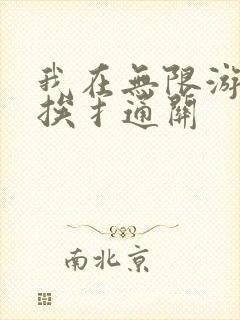 我在無限游
挨才通關
南北京